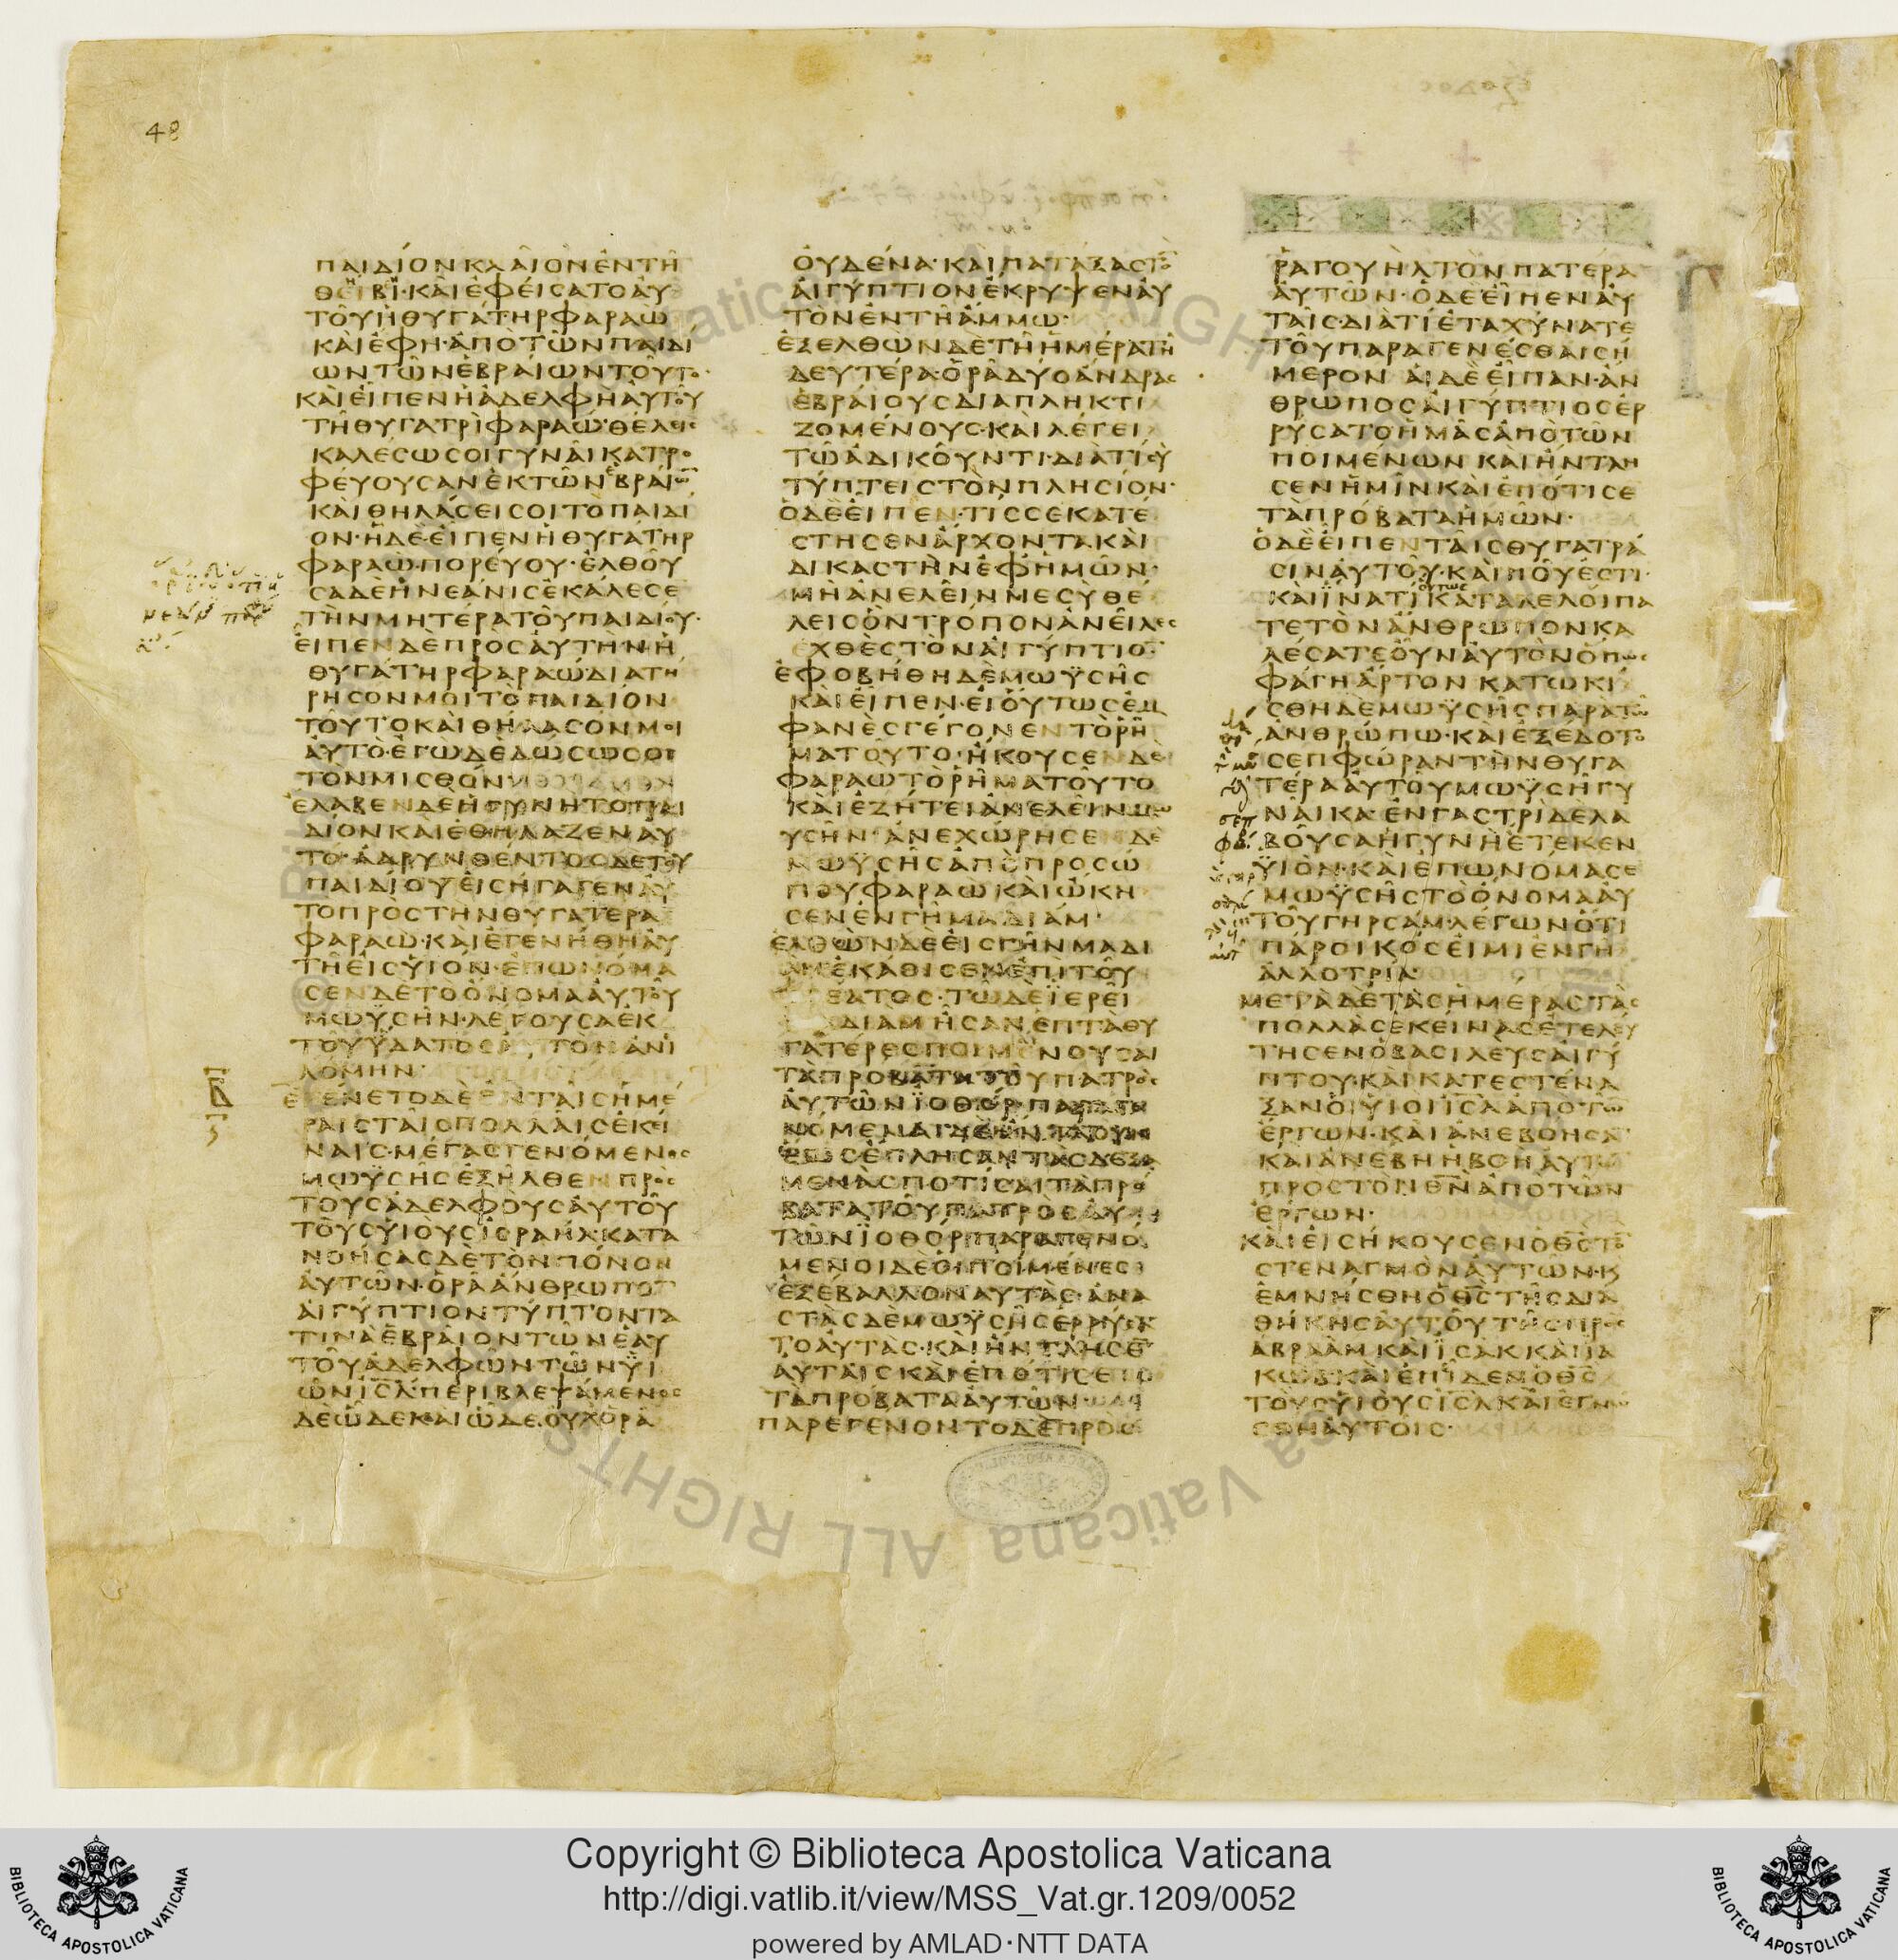 48
ΠΑΙΔΙΟΝΚΛΑΙΟΝΕΝΤΗ
ΘΕΙΒΙ·ΚΑΙΕΦΕΙΣΑΤΟΑΥ
ΤΟΥΗΘΥΓΑΤΗΡΦΑΡΑΩ
ΚΑΙΕΦΗ·ΑΠΟΤΩΝΠΑΙΔΙ
ΩΝΤΩΝΕΒΡΑΙΩΝΤΟΥΤΟ·
ΚΑΙΕΙΠΕΝΗΑΔΕΛΦΗΑΥΤΟΥ
ΤΗΘΥΓΑΤΡΙΦΑΡΑΩ·ΘΕΛΕΙΣ
ΚΑΛΕΣΩΣΟΙΓΥΝΑΙΚΑΤΡΟ
ΦΕΥΟΥΣΑΝΕΚΤΩΝΕΒΡΑΙΩ̅
ΚΑΙΘΗΛΑΣΕΙΣΟΙΤΟΠΑΙΔΙ
ΟΝ·ΗΔΕΕΙΠΕΝΗΘΥΓΑΤΗΡ
ΦΑΡΑΩ·ΠΟΡΕΥΟΥ·ΕΛΘΟΥ
ΣΑΔΕΗΝΕΑΝΙΣΕΚΑΛΕΣΕ
ΤΗΝΜΗΤΕΡΑΤΟΥΠΑΙΔΙΟΥ·
ΕΙΠΕΝΔΕΠΡΟΣΑΥΤΗΝΗ
ΘΥΓΑΤΗΡΦΑΡΑΩΔΙΑΤΗ
ΡΗΣΟΝΜΟΙΤΟΠΑΙΔΙΟΝ
ΤΟΥΤΟΚΑΙΘΗΛΑΣΟΝΜΟΙ
ΑΥΤΟ·ΕΓΩΔΕΔΩΣΩΣΟΙ
ΤΟΝΜΙΣΘΟΝ
ΕΛΑΒΕΝΔΕΗΓΥΝΗΤΟΠΑΙ
ΔΙΟΝΚΑΙΕΘΗΛΑΖΕΝΑΥ
ΤΟ·ΑΔΡΥΝΘΕΝΤΟΣΔΕΤΟΥ
ΠΑΙΔΙΟΥΕΙΣΗΓΑΓΕΝΑΥ
ΤΟΠΡΟΣΤΗΝΘΥΓΑΤΕΡΑ
ΦΑΡΑΩ·ΚΑΙΕΓΕΝΗΘΗΑΥ
ΤΗΕΙΣΥΙΟΝ·ΕΠΩΝΟΜΑ
ΣΕΝΔΕΤΟΟΝΟΜΑΑΥΤΟΥ
ΜΩΫΣΗΝ·ΛΕΓΟΥΣΑΕΚ
ΤΟΥΫΔΑΤΟΣΑΥΤΟΝΑΝΙ
ΛΟΜΗΝ·
ΕΓΕΝΕΤΟΔΕΕΝΤΑΙΣΗΜΕ
ΡΑΙΣΤΑΙΣΠΟΛΛΑΙΣΕΚΕΙ
ΝΑΙΣ·ΜΕΓΑΣΓΕΝΟΜΕΝΟΣ
ΜΩΫΣΗΣΕΞΗΛΘΕΝΠΡΟΣ
ΤΟΥΣΑΔΕΛΦΟΥΣΑΥΤΟΥ
ΤΟΥΣΥΙΟΥΣΙΣΡΑΗΛΚΑΤΑ
ΝΟΗΣΑΣΔΕΤΟΝΠΟΝΟΝ
ΑΥΤΩΝ·ΟΡΑΑΝΘΡΩΠΟΝ
ΑΙΓΥΠΤΙΟΝΤΥΠΤΟΝΤΑ
ΤΙΝΑΕΒΡΑΙΟΝΤΩΝΕΑΥ
ΤΟΥΑΔΕΛΦΩΝΤΩΝΥΙ
ΩΝΙΣ̅Λ̅·ΠΕΡΙΒΛΕΨΑΜΕΝΟΣ
ΔΕΩΔΕΚΑΙΩΔΕ·ΟΥΧΟΡΑ
ΟΥΔΕΝΑ·ΚΑΙΠΑΤΑΞΑΣΤΟ̅
ΑΙΓΥΠΤΙΟΝΕΚΡΥΨΕΝΑΥ
ΤΟΝΕΝΤΗΑΜΜΩ·
ΕΞΕΛΘΩΝΔΕΤΗΗΜΕΡΑΤΗ
ΔΕΥΤΕΡΑ·ΟΡΑΔΥΟΑΝΔΡΑΣ
ΕΒΡΑΙΟΥΣΔΙΑΠΛΗΚΤΙ
ΖΟΜΕΝΟΥΣ·ΚΑΙΛΕΓΕΙ
ΤΩΑΔΙΚΟΥΝΤΙ·ΔΙΑΤΙΣΥ
ΤΥΠΤΕΙΣΤΟΝΠΛΗΣΙΟΝ·
ΟΔΕΕΙΠΕΝ·ΤΙΣΣΕΚΑΤΕ
ΣΤΗΣΕΝΑΡΧΟΝΤΑΚΑΙ
ΔΙΚΑΣΤΗΝΕΦΗΜΩΝ·
ΜΗΑΝΕΛΕΙΝΜΕΣΥΘΕ
ΛΕΙΣΟΝΤΡΟΠΟΝΑΝΕΙΛΕΣ
ΕΧΘΕΣΤΟΝΑΙΓΥΠΤΙΟ̅
ΕΦΟΒΗΘΗΔΕΜΩΫΣΗΣ
ΚΑΙΕΙΠΕΝ·ΕΙΟΥΤΩΣΕΜ
ΦΑΝΕΣΓΕΓΟΝΕΝΤΟΡΗ
ΜΑΤΟΥΤΟ·ΗΚΟΥΣΕΝΔΕ
ΦΑΡΑΩΤΟΡΗΜΑΤΟΥΤΟ
ΚΑΙΕΖΗΤΕΙΑΝΕΛΕΙΝΜΩ
ΥΣΗΝ·ΑΝΕΧΩΡΗΣΕΝΔΕ
ΜΩΫΣΗΣΑΠΟΠΡΟΣΩ
ΠΟΥΦΑΡΑΩΚΑΙΩΚΗ
ΣΕΝΕΝΓΗΜΑΔΙΑΜ·
ΕΛΘΩΝΔΕΕΙΣΓΗΝΜΑΔΙ
ΑΜΕΚΑΘΙΣΕΝΕΠΙΤΟΥ
ΦΡΕΑΤΟΣ·ΤΩΔΕΪΕΡΕΙ
ΜΑΔΙΑΜΗΣΑΝΕΠΤΑΘΥ
ΓΑΤΕΡΕΣΠΟΙΜΕΝΟΥΣΑΙ
ΤΑΠΡΟΒΑΤΑΤΟΥΠΑΤΡΟΣ
ΑΥΤΩΝΪΟΘΟΡ·ΠΑΡΑΓΕΙ
ΝΟΜΕΝΑΙΔΕΗΝΤΛΟΥΝ
ΕΩΣΕΠΛΗΣΑΝΤΑΣΔΕΞΑ
ΜΕΝΑΣΠΟΤΙΣΑΙΤΑΠΡΟ
ΒΑΤΑΤΟΥΠΑΤΡΟΣΑΥ
ΤΩΝΪΟΘΟΡΠΑΡΑΓΕΝΟ
ΜΕΝΟΙΔΕΟΙΠΟΙΜΕΝΕΣ
ΕΞΕΒΑΛΛΟΝΑΥΤΑΣ·ΑΝΑ
ΣΤΑΣΔΕΜΩΫΣΗΣΕΡΡΥΣΑ
ΤΟΑΥΤΑΣ·ΚΑΙΗΝΤΛΗΣΕ̅
ΑΥΤΑΙΣΚΑΙΕΠΟΤΙΣΕ
ΤΑΠΡΟΒΑΤΑΑΥΤΩΝ·
ΠΑΡΕΓΕΝΟΝΤΟΔΕΠΡΟΣ
ΡΑΓΟΥΗΛΤΟΝΠΑΤΕΡΑ
ΑΥΤΩΝ·ΟΔΕΕΙΠΕΝΑΥ
ΤΑΙΣ·ΔΙΑΤΙΕΤΑΧΥΝΑΤΕ
ΤΟΥΠΑΡΑΓΕΝΕΣΘΑΙΣΗ
ΜΕΡΟΝ ΑΙΔΕΕΙΠΑΝ·ΑΝ
ΘΡΩΠΟΣΑΙΓΥΠΤΙΟΣΕΡ
ΡΥΣΑΤΟΗΜΑΣΑΠΟΤΩΝ
ΠΟΙΜΕΝΩΝ ΚΑΙΗΝΤΛΗ
ΣΕΝΗΜΙΝΚΑΙΕΠΟΤΙΣΕ
ΤΑΠΡΟΒΑΤΑΗΜΩΝ·
ΟΔΕΕΙΠΕΝΤΑΙΣΘΥΓΑΤΡΑ
ΣΙΝΑΥΤΟΥ·ΚΑΙΠΟΥΕΣΤΙ·
ΚΑΙΪΝΑΤΙΚΑΤΑΛΕΛΟΙΠΑ
ΤΕΤΟΝΑΝΘΡΩΠΟΝΚΑ
ΛΕΣΑΤΕΟΥΝΑΥΤΟΝΟΠΩΣ
ΦΑΓΗΑΡΤΟΝ ΚΑΤΩΚΙ
ΣΘΗΔΕΜΩΫΣΗΣΠΑΡΑΤΩ
ΑΝΘΡΩΠΩ·ΚΑΙΕΞΕΔΟΤΟ
ΣΕΠΦΩΡΑΝΤΗΝΘΥΓΑ
ΤΕΡΑΑΥΤΟΥΜΩΫΣΗΓΥ
ΝΑΙΚΑ·ΕΝΓΑΣΤΡΙΔΕΛΑ
ΒΟΥΣΑΗΓΥΝΗΕΤΕΚΕΝ
ΫΙΟΝ·ΚΑΙΕΠΩΝΟΜΑΣΕ
ΜΩΫΣΗΣΤΟΟΝΟΜΑΑΥ
ΤΟΥΓΗΡΣΑΜ·ΛΕΓΩΝΟΤΙ
ΠΑΡΟΙΚΟΣΕΙΜΙΕΝΓΗ
ΑΛΛΟΤΡΙΑ·
ΜΕΤΑΔΕΤΑΣΗΜΕΡΑΣΤΑΣ
ΠΟΛΛΑΣΕΚΕΙΝΑΣΕΤΕΛΕΥ
ΤΗΣΕΝΟΒΑΣΙΛΕΥΣΑΙΓΥ
ΠΤΟΥ·ΚΑΙΚΑΤΕΣΤΕΝΑ
ΞΑΝΟΙΥΙΟΙΙΣ̅Λ̅ΑΠΟΤΩ̅
ΕΡΓΩΝ·ΚΑΙΑΝΕΒΟΗΣΑ̅
ΚΑΙΑΝΕΒΗΗΒΟΗΑΥΤΩ̅
ΠΡΟΣΤΟΝΘ̅Ν̅ΑΠΟΤΩΝ
ΕΡΓΩΝ·
ΚΑΙΕΙΣΗΚΟΥΣΕΝΟΘ̅Σ̅ΤΟ̅
ΣΤΕΝΑΓΜΟΝΑΥΤΩΝ·Κ
ΕΜΝΗΣΘΗΟΘ̅Σ̅ΤΗΣΔΙΑ
ΘΗΚΗΣΑΥΤΟΥΤΗΣΠΡΟΣ
ΑΒΡΑΑΜΚΑΙΪΣΑΚΚΑΙΙΑ
ΚΩΒ·ΚΑΙΕΠΙΔΕΝΟΘ̅Σ̅
ΤΟΥΣΥΙΟΥΣΙΣ̅Λ̅ΚΑΙΕΓΝΩ
ΣΘΗΑΥΤΟΙΣ·
Copyright © Biblioteca Apostolica Vaticana
http://digi.vatlib.it/view/MSS_Vat.gr.1209/0052
powered by AMLAD·NTT DATA
BIBLIOTECA APOSTOLICA VATICANA
BIBLIOTECA APOSTOLICA VATICANA